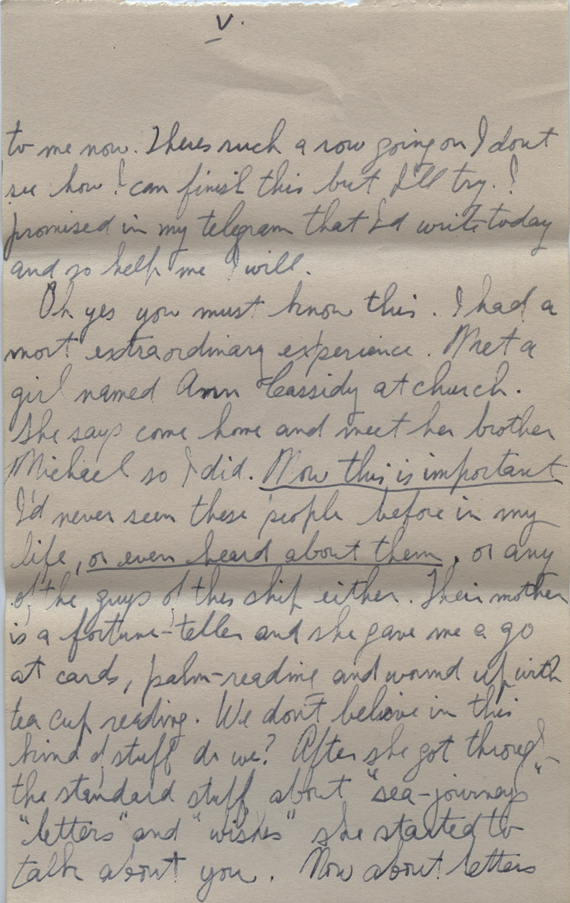 V.
to me now. Theres such a row going on I dont
see how I can finish this but I'll try. I
promised in my telegram that I'd write today
and so help me I will.
Oh yes you must know this. I had a
most extraordinary experience. Met a
girl named Ann Cassidy at church.
She says come home and meet her brother
Michael so I did. Now this is important
I'd never seen these people before in my
life, or even heard about them, or any
of the guys of this ship either. Their mother
is a fortune-teller and she gave me a go
at cards, palm-reading and wound up with
tea cup reading. We don't believe in this
kind of stuff do we? After she got through
the standard stuff about "sea-journeys"
"letters" and "wishes" she started to
talk about you. Now about letters